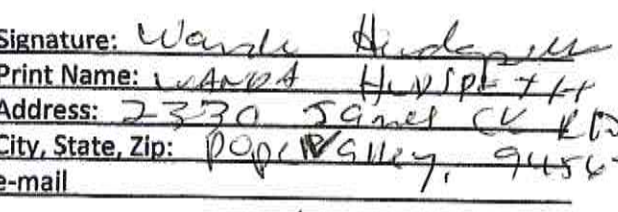 Signature: Wanda
Print Name: WANDA HUDSPETH
Address: 2330 James CK RD
City, State, Zip: Pope Valley, 9456
e-mail